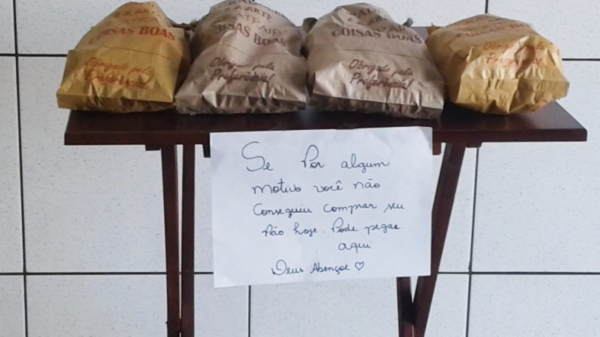 COISAS BOAS
Obrigado pela
Preferência!
COISAS BOAS
Obrigado pela
Preferência!
COISAS BOAS
Obrigado pela
Preferência!
Se Por algum
motivo você não
Conseguiu comprar seu
Pão hoje. Pode pegar
aqui
Deus Abençoe ♡